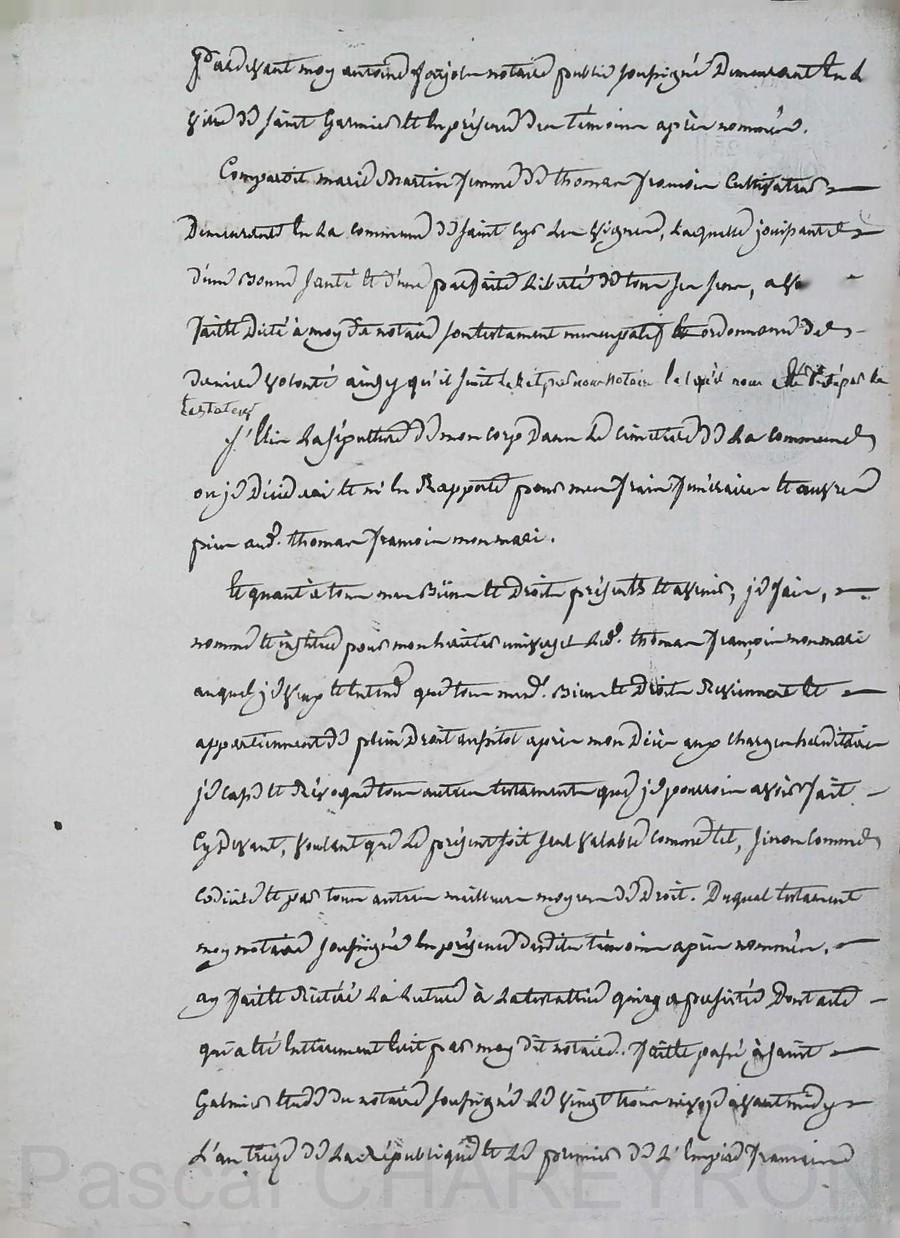 Pardevant moy antoine forjot notaire public soussigné Demeurant En la
ville de saint Galmier Et En présence des témoins après nommés.
Comparut marie Martin femme de thomas françois Cultivateur
Demeurant En la commune de saint Cyr Les Vignes, Laquelle jouissante
d'une Bonne santé Et d'une parfaite Liberté de tous ses sens, a
faitte Dicté à moy de notaire son testament nuncupatif Et ordonnance de
dernière volonté ainsy qu'il suit
testateur
j'Elis La sépulture de mon corp Dans Le cimetière de La commune
ou je Décéderai Et m'En Rapporte pour mes frais funéraires Et œuvres
pies aud. thomas françois mon mari.
Et quant à tous mes Biens Et Droits présents Et avenir, je fais,
nomme Et institue pour mon héritier universel Led. thomas françois mon mari
auquel je veux Et Entend que tous mesd. Biens Et Droits Reviennent Et
appartiennent de plein Droit aussitot après mon Décès aux charges héréditaires
je casse Et Révoque tous autres testaments que je pourrois avoir fait
Cy Devant, voulant que Le présent soit seul valable comme tel, sinon comme
Codicile Et par tous autres meilleurs moyens de Droit. Duquel testament
moy notaire soussigné En présence desdits témoins après nommés,
ay faitte Réitéré La Lecture à La testatrice qui y a persisté Dont acte
qui a été Entierement Ecrit par moy dit notaire. faitte passé à saint
Galmier Etude du notaire soussigné Le vingt trois nivose avant midy
L'an treize de La République Et Le premier de L'Empire français
Pascal CHAREYRON